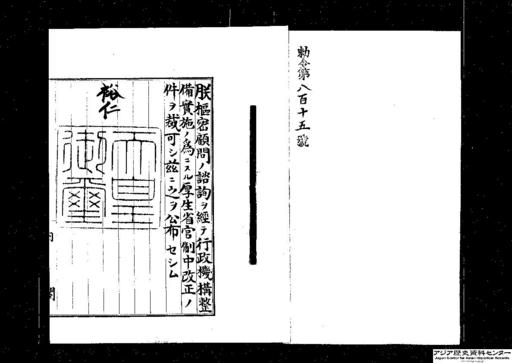 勅令第八百十五號
朕樞密顧問ノ諮詢ヲ經テ行政機構整
備實施ノ爲ニスル厚生省官制中改正ノ
件ヲ裁可シ茲ニ之ヲ公布セシム
裕仁
天皇御璽
内閣
アジア歴史資料センター
Japan Center for Asian Historical Records